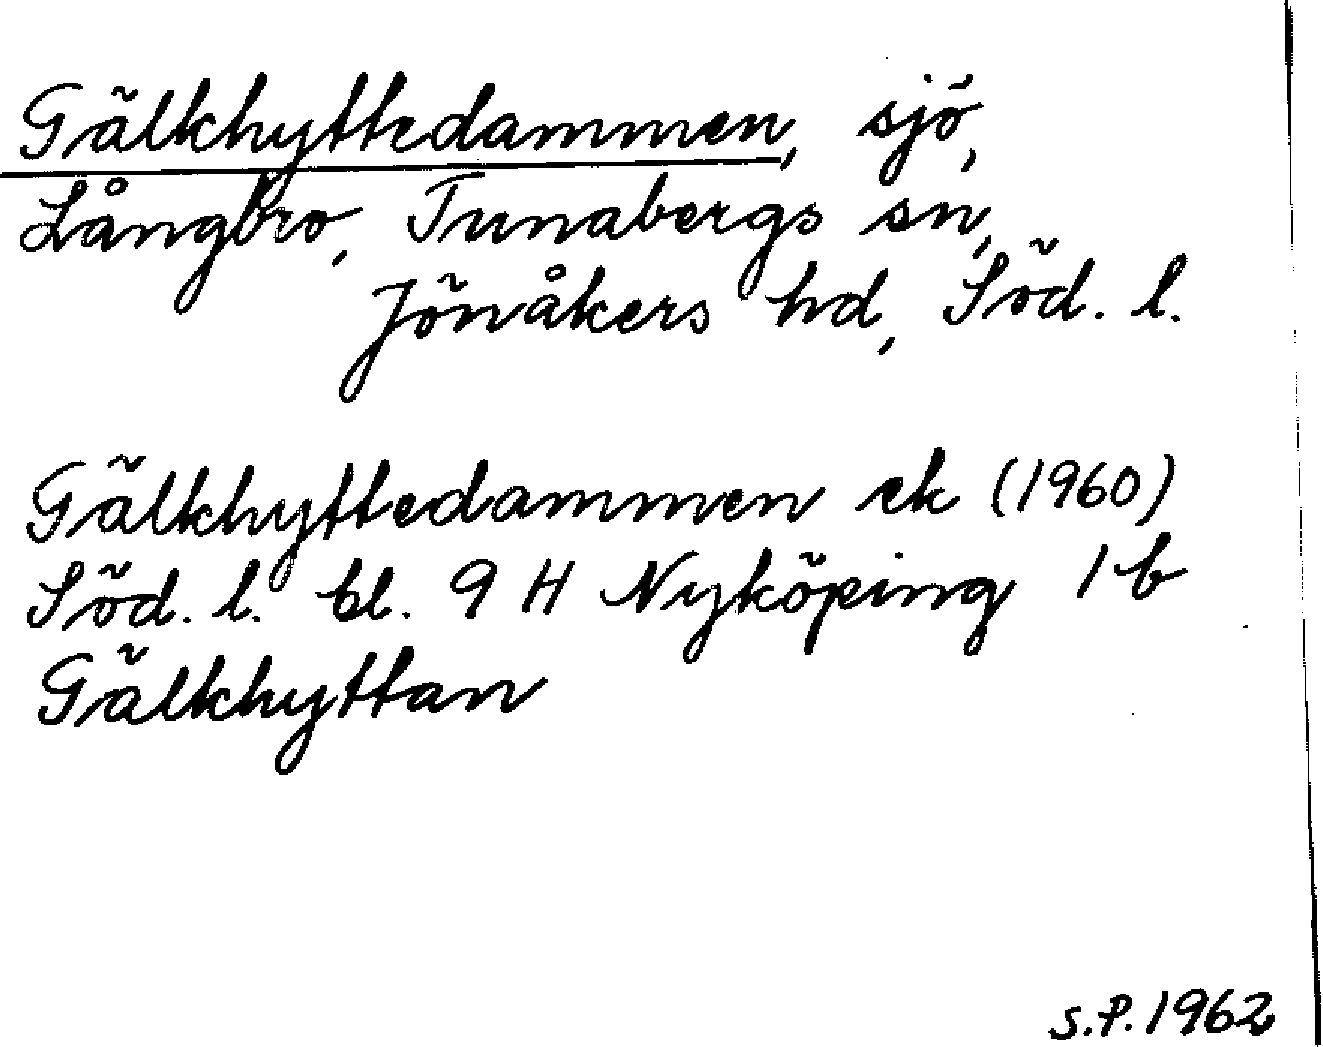 Gälkhyttedammen, sjö,
Långbro, Tunabergs sn,
Jönåkers hd, Söd. l.
Gälkhyttedammen ek (1960)
Söd. l. bl. 9 H Nyköping 1 b
Gälkhyttan
S.P. 1962